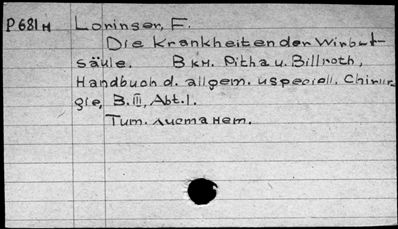 P 681 н Lorinser, F.
Die Krankheiten der Wirbel-
säule. В кн. Pitha u. Billroth,
Handbuch d. allgem. u speciell. Chirur-
gie, B. III, Abt. I.
Тит. лист а нем.